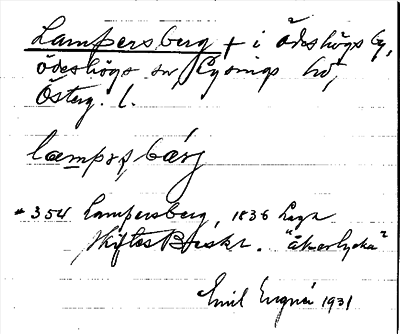 Lampersberg + i Ödeshögs by,
Ödeshögs sn, Lysings hd,
Österg. l.
læmpəʂbærj
354 Lampersberg, 1836 Laga
skiftes Beskr. "åkerlycka"
Emil 1931